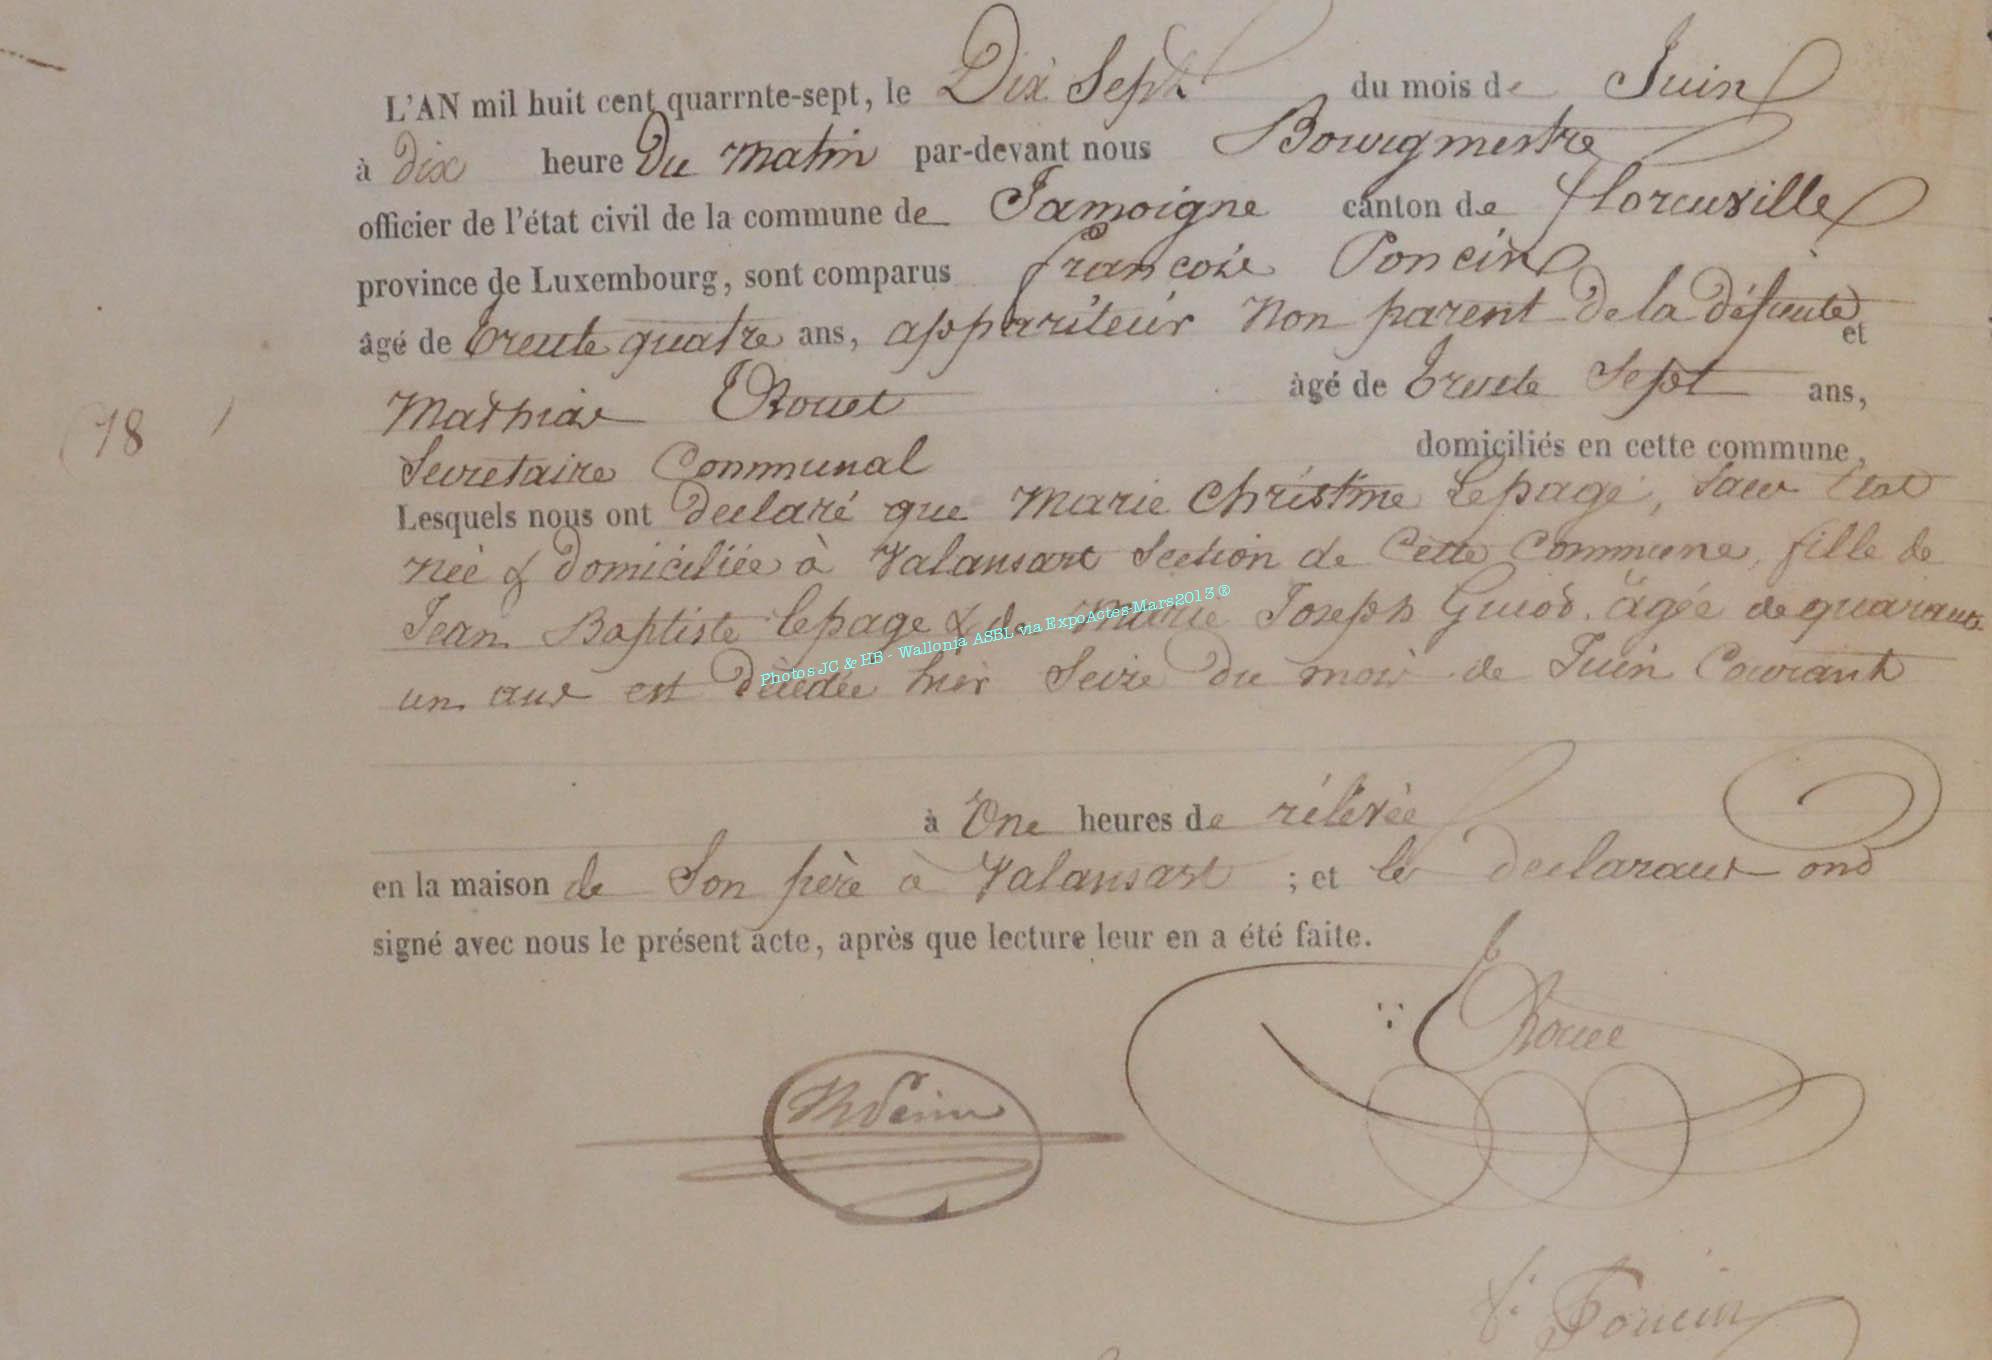 L'AN mil huit cent quarrnte-sept, le Dix Sept du mois de Juin
à dix heure Du Matin par-devant nous Bourgmestre
officier de l'état civil de la commune de Jamoigne canton de florenville
province de Luxembourg, sont comparus françois Poncin
âgé de trente quatre ans, appariteur Non parent De la défunte et
Mathias Rouet âgé de trente Sept ans,
Secretaire Communal domiciliés en cette commune,
Lesquels nous ont declaré que Marie Christine Lepage, Sans Etat
18
née & Domiciliée à Valansart Section de Cette Commune, fille de
Jean Baptiste lepage & de Marie Joseph Guiod. âgée de quarante
un ans est Décédée hier Seize Du mois de Juin Courant
Photos JC & HB - Wallonia ASBL via ExpoActes-Mars2013 ®
à Une heures de rélevée
en la maison de Son père à Valansart ; et les declarants ond
signé avec nous le présent acte, après que lecture leur en a été faite.
Rouet
f. Poncin